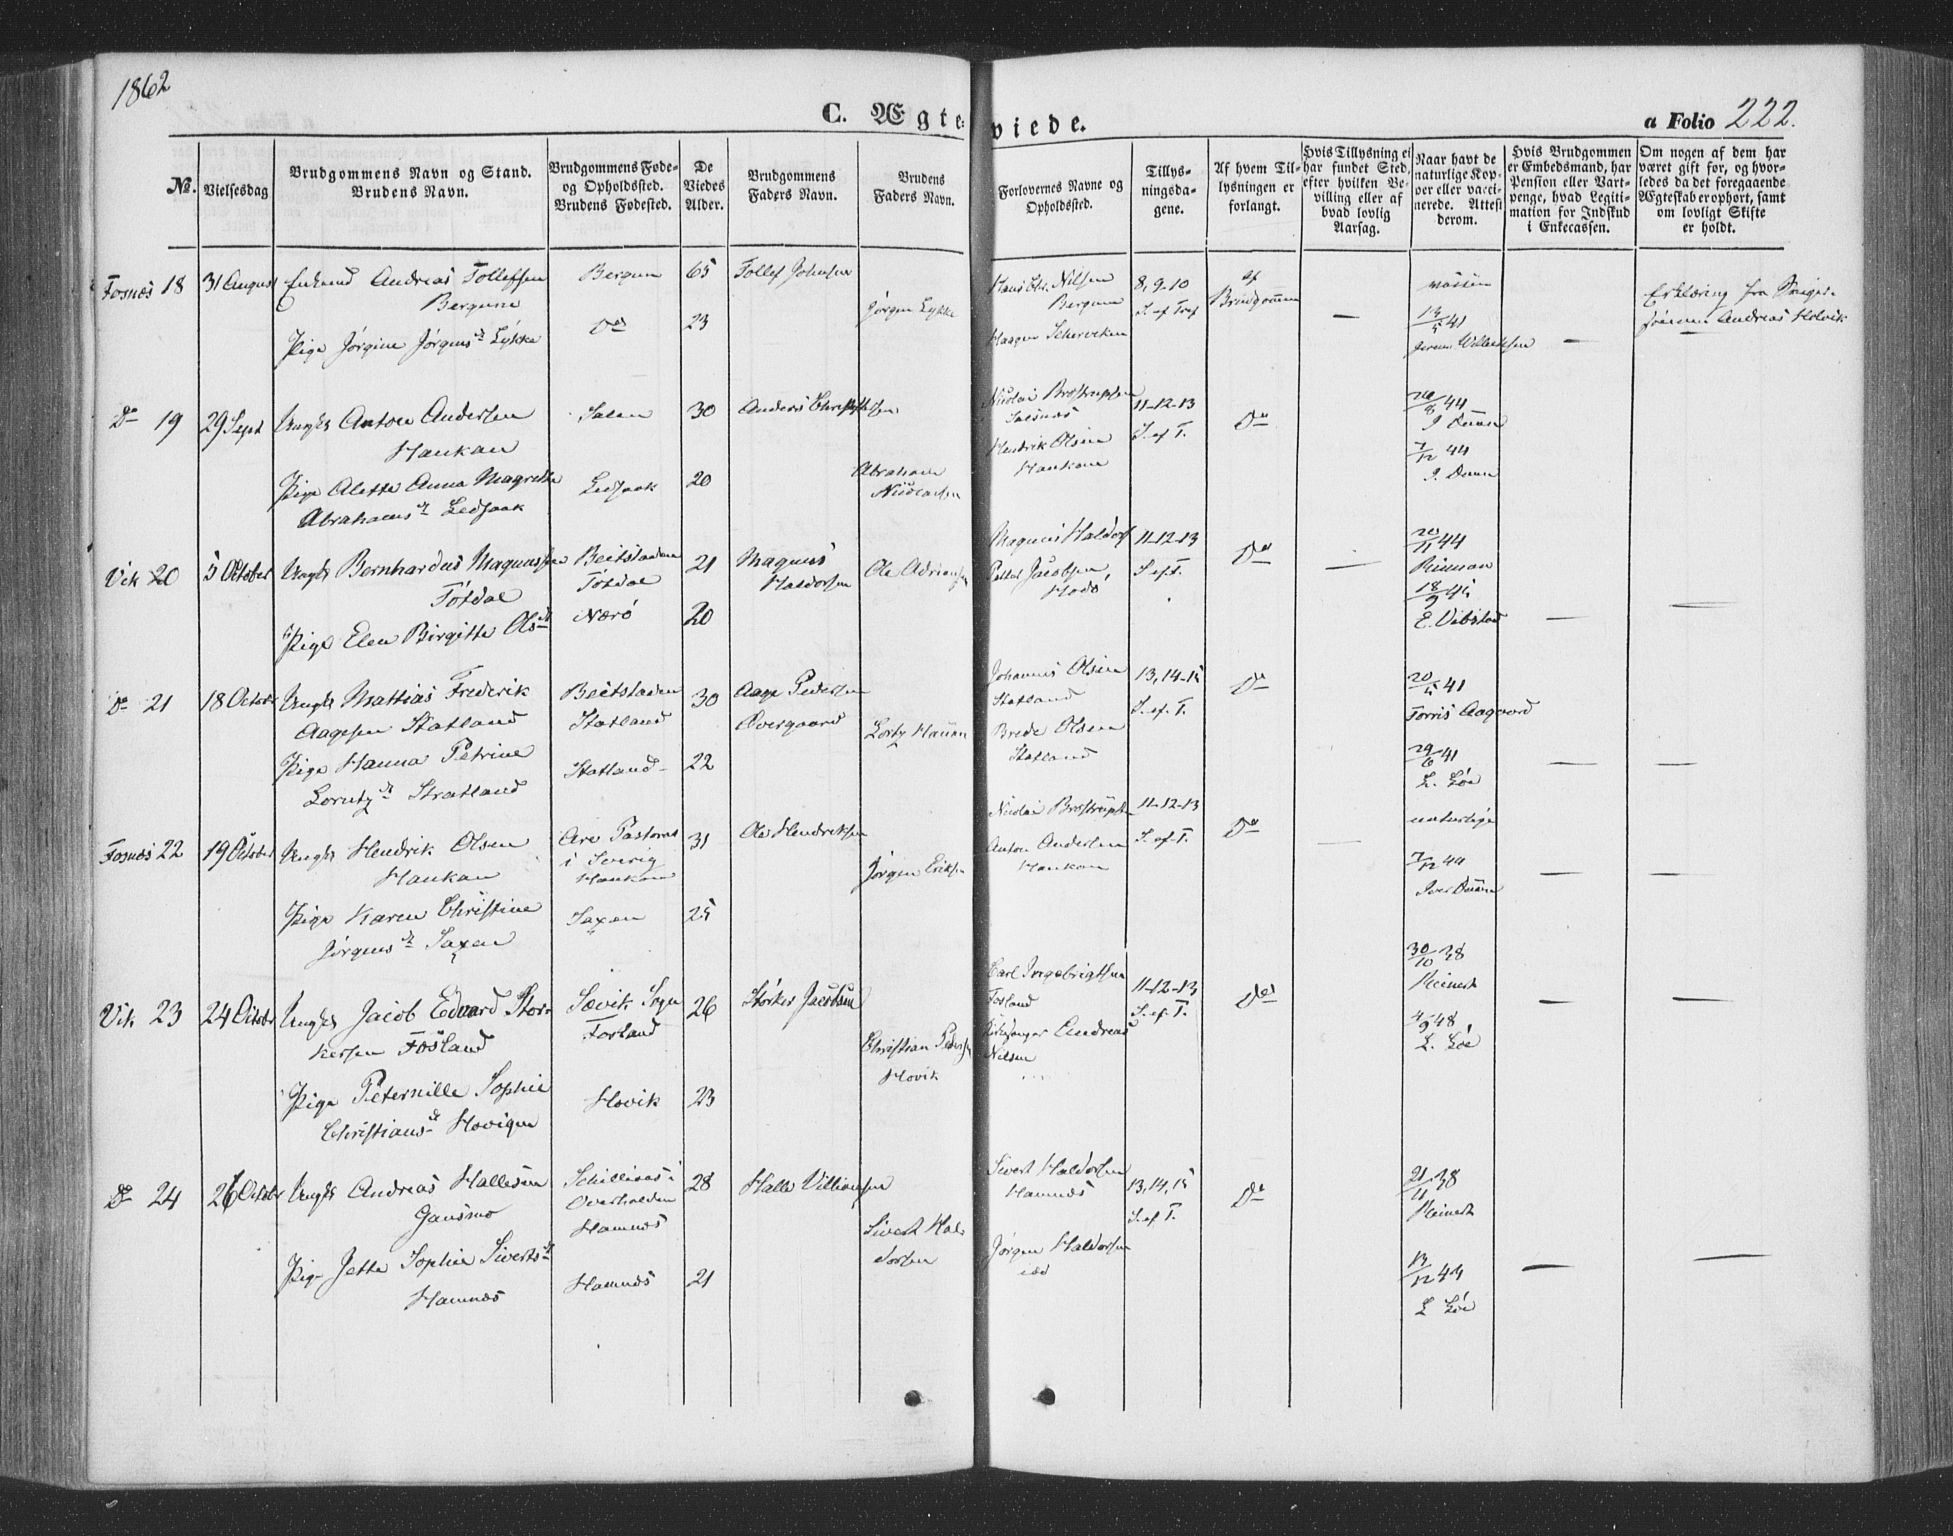 1862
C. Ægteviede.
a Folio 222.
No.
Vielsesdag
Brudgommens Navn og Stand.
Brudens Navn.
Brudgommens Føde-
og Opholdssted.
Brudens Fødested.
De
Viedes
Alder.
Brudgommens
Faders Navn.
Brudens
Faders Navn.
Forlovernes Navne og
Opholdssted.
Tillys-
ningsda-
gene.
Af hvem Til-
lysningen er
forlangt.
Hvis Tillysning ei
har fundet Sted,
efter hvilken Be-
villing eller af
hvad lovlig
Aarsag.
Naar havt de
naturlige Kop-
per eller vacci-
nerede. Attest
derom.
Hvis Brudgommen
er Embedsmand, har
Pension eller Vart-
penge, hvad Legiti-
mation for Indskud
i Enkecassen.
Om nogen af dem har
været gift før, og hvor-
ledes da det foregaaende
Ægteskab er ophørt, samt
om lovligt Skifte
er holdt.
Fosnæs 18
31 August
Enkemd Andreas Tollefsen
Bergune
Pige Jørgine Jørgensdr Lykke
Do
65
23
Tollef Johnsen
Jørgen Lykke
Hans Chr. Nilsen
Haagen
8, 9-10
S. ef Tref
af
Brudgommen
—
13/5 41
—
Erklæring fra Sviger-
sønnen Andreas Holvik
—
Do 19
29 Sept
Ungk Anton Andersen
Haukan
Pige Alette Anna Magrethe
Abrahamsdr Ledsaak
Salen
Ledsaak
30
20
Anders Christophersen
Abraham
Nicolaisen
Nicolai Brostrupsen
Salsnæs
Hendrik Olsen
Haukan
11-12-13
S. ef T.
Do
—
20/8 44
I Duun
7/12 44
I. Duun
Vik 20
5 October
Ungk Bernhardus Magnussen
Tøtdal
Pige Elen Birgitte Olsdr
Beitstaden
Tøtdal
Nærø
21
20
Magnus
Haldorsen
Ole Adriansen
Magnus Haldors
Jacobsen
Hodø
11-12-13
S. ef. T.
Do
—
20/11 44
18/9 45
E. Vibstad
—
—
Do 21
18 October
Ungk Mattias Frederik
Aagesen Statland
Pige Hanna Petrine
Lorntzdr Stratland
Beitstaden
Statland
Statland
30
22
Aage Pedersen
Overgaard
Johannes Olsen
Statland
Brede Olsen
Statland
13, 14-15
S. ef. T.
Do
—
20/5 41
Torris Aagaard
29/6 41
L. Løe
—
—
Fosnæs 22
19 October
Ungk Hendrik Olsen
Haukan
Pige Karen Christine
Jørgensdr Saxen
i Sverig
Haukan
Saxen
31
25
Ole Hendriksen
Jørgen Eriksen
Nicolai Brostrupsen
Anton Andersen
Haukan
11-12-13
S. ef. T.
Do
—
naturlige
7/12 44
Iver Duun
—
—
Vik 23
24 October
Ungk Jacob Eduard Stor-
kersen Fosland
Pige Peternille Sophie
Christiansdr Hovigen
Sævik Sogn
Forland
Hovik
26
23
Størker
Christian Pedersen
Hovik
Carl Ingebrigtsen
Fosland
Kirkesanger Andreas
Nilsen
11-12-13
S. ef. T.
Do
30/10 38
Meinert
4/9 48
L. Løe
—
—
Do 24
26 October
Ungk Andreas Hallesen
Gansmo
Pige Jette Sophie Sivertsdr
Hamnæs
Overhalden
Hamnæs
Hamnæs
28
21
Halle Villiamsen
Sivert Hal-
dorsen
Sivert Haldorsen
Hamnæs
Jørgen Haldorsen
13, 14, 15
S. ef T.
Do
21/11 38
Meinert
13/12 44
L Løe
—
—